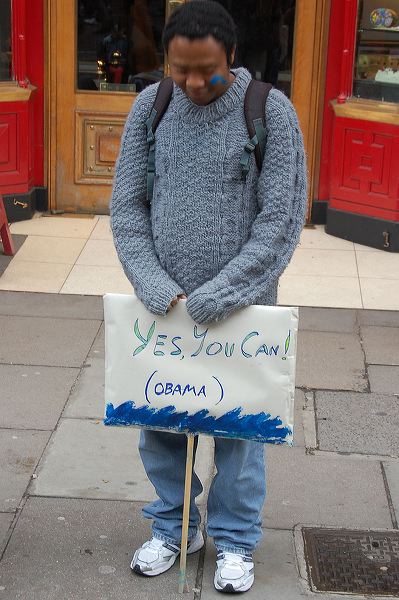 Yes, You Can!
(OBAMA)